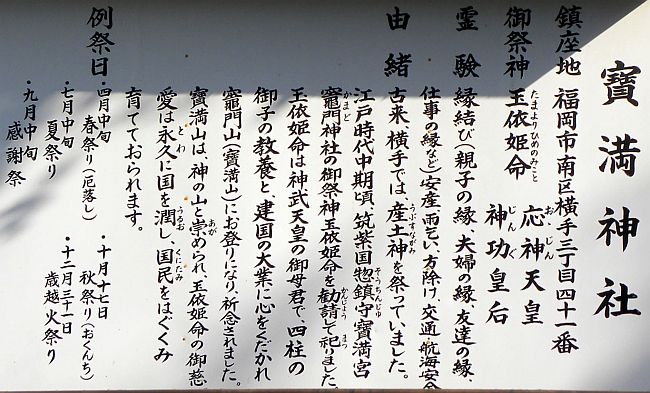 寶満神社
鎮座地 福岡市南区横手三丁目四十一番
御祭神 玉依姫命 応神天皇
神功皇后
たまよりひめのみこと おうじん
じんぐ
霊験 縁結び(親子の縁、夫婦の縁、友達の縁、
仕事の縁など)安産、雨乞い、方除け、交通、航海安全
由緒 古来、横手では、産土神を祭っていました。
うぶすながみ
江戸時代中期頃、筑紫国惣鎮守寶満宮
そうちんじゅ
竈門神社の御祭神玉依姫命を勧請して祀りました。
かまど かんじょう まつ
玉依姫命は神武天皇の御母君で、四柱の
御子の教養と、建国の大業に心をくだかれ
竈門山(寶満山)にお登りになり、祈念されました。
寶満山は、神の山と崇められ、玉依姫命の御慈
あが
愛は永久に国を潤し、国民をはぐくみ
とわ うるおし くにたみ
育てておられます。
例祭日 ・四月中旬 春祭り(厄落し) ・十月十七日 秋祭り(おくんち)
・七月中旬 夏祭り ・十二月三十一日 歳越火祭り
・九月中旬 感謝祭